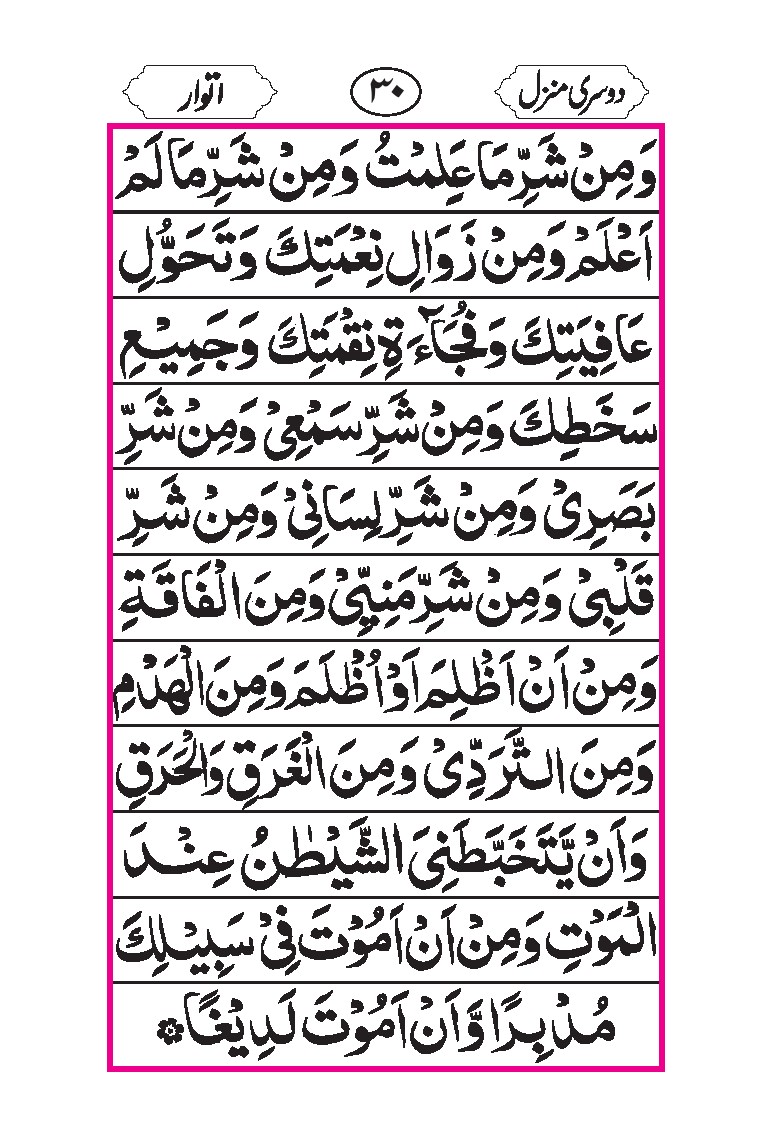 دوسری منزل
۳۰
اتوار
وَمِنْ شَرِّمَا عَلِمْتُ وَمِنْ شَرِّمَا لَمْ
اَعْلَمْ وَمِنْ زَوَالِ نِعْمَتِكَ وَتَحَوُّلِ
عَافِيَتِكَ وَفُجَآءَةِ نِقْمَتِكَ وَجَمِيْعِ
سَخَطِكَ وَمِنْ شَرِّ سَمْعِیْ وَمِنْ شَرِّ
بَصَرِیْ وَمِنْ شَرِّ لِسَانِیْ وَمِنْ شَرِّ
قَلْبِیْ وَمِنْ شَرِّ مَنِیِّیْ وَمِنَ الْفَاقَةِ
وَمِنْ اَنْ اَظْلِمَ اَوْ اُظْلَمَ وَمِنَ الْهَدْمِ
وَمِنَ التَّرَدِّیْ وَمِنَ الْغَرَقِ وَالْحَرَقِ
وَاَنْ يَّتَخَبَّطَنِیَ الشَّيْطٰنُ عِنْدَ
الْمَوْتِ وَمِنْ اَنْ اَمُوْتَ فِیْ سَبِيْلِكَ
مُدْبِرًا وَّاَنْ اَمُوْتَ لَدِيْغًا ۞